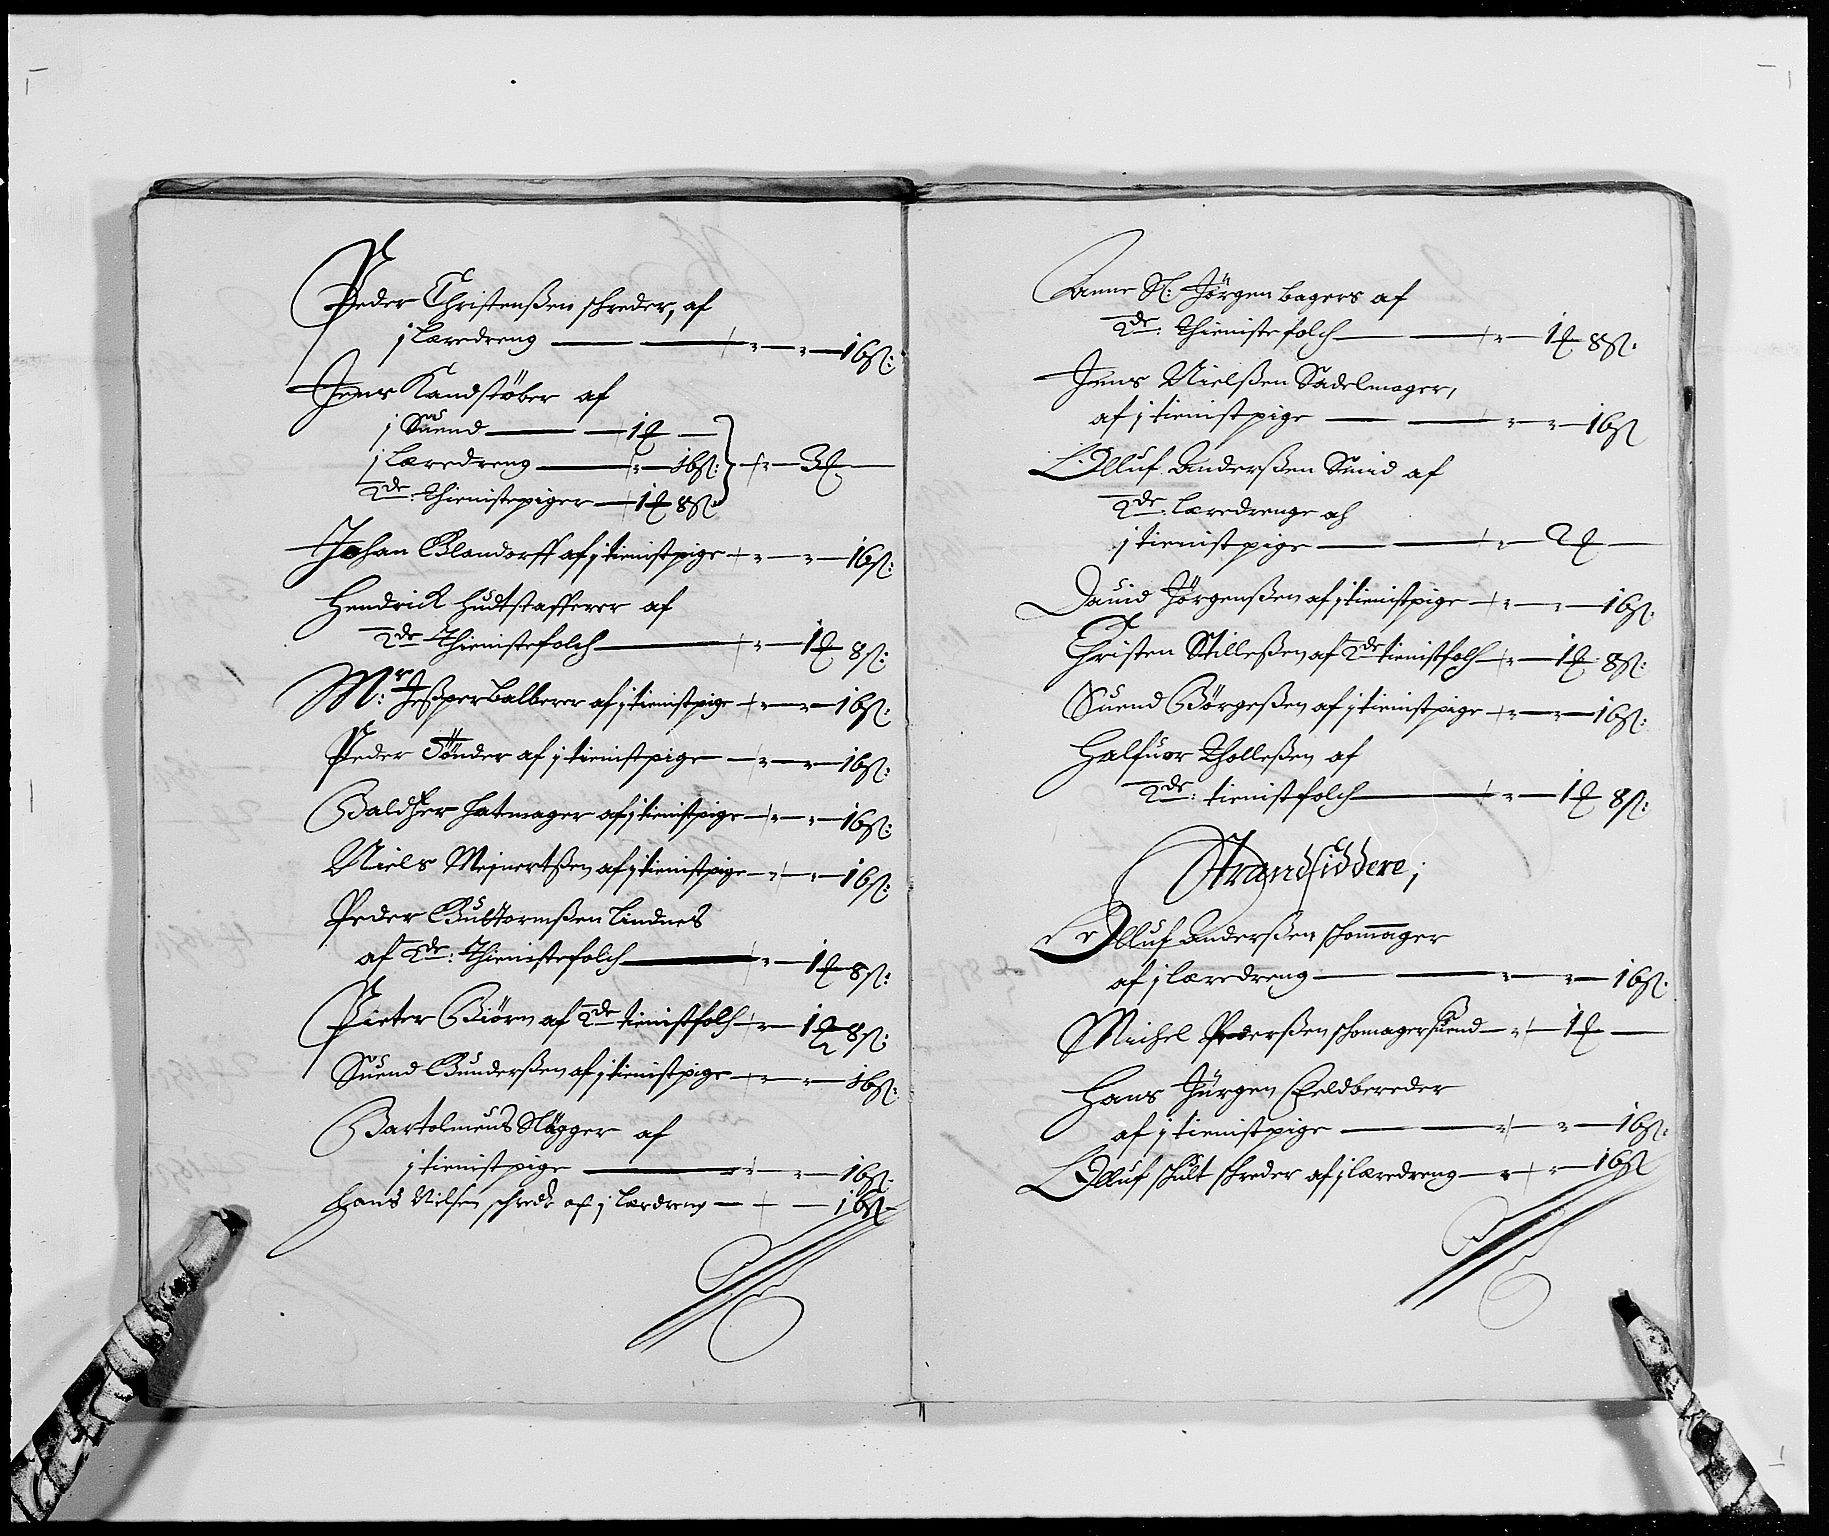 Peder Christenßen skreder, af
j læredreng — — „ — „ — 16 ß:
Jens Kandstøber af
j Suend — 1 —
j læredreng — „ — 16 ß: — „ — 3 —
2de: thienistepiger — 1 8 ß:
Johan Blandorff af j tienistpige „ — „ — 16 ß:
Hendrick Hudtstafferer af
2de Thienistefolch — „ — 1 8 ß:
Mr: Jeßper balberer af j tienistpige „ — „ — 16 ß:
Peder Tønder af j tienistpige — „ — „ — 16 ß:
Baldzer Hatmager af j tienistpige — „ — „ — 16 ß:
Niels Mejnertßen af j tienistpige — „ — „ — 16 ß:
Peder Guttormßen Lindnes
af 2de: Thienistefolch — „ — 1 8 ß:
Pieter Biørn af 2de tienistfolch — „ — 1 8 ß:
Suend Gunderßen af j tienistpige — „ — „ — 16 ß:
Bartolmeus Nägger af
j tienistpige — „ — „ — 16 ß:
Hans Nielsen schreder af j læredreng — — 16 ß
Anne Sl: Jørgen bagers af
2de: Thienistefolch — — „ — 1 8 ß:
Jens Nielßen Sadelmager,
af j tienistpige — — „ — „ — 16 ß
Olluf Anderßen Smid af
2de: læredrenge och
j tienistpige — — „ — 2 —
Dauid Jørgenßen af j tienistpige „ — „ — 16 ß:
Christen Stilleßen af 2de tienistfolch „ — 1 8 ß:
Suend Børgeßen af j tienistpige „ — „ — 16 ß:
Halfuor Tholleßen af
2de: tienistfolch — „ — 1 8 ß:
Strandsiddere;
Olluf Anderßen skomager
af j læredreng — — „ — „ — 16 ß:
Michel Pederßen skomagersuend — „ — 1 —
Hans Jürgen Feldbereder
af j tienistpige — — „ — „ — 16 ß:
Olluf Skult skreder af j læredreng — „ — „ — 16 ß